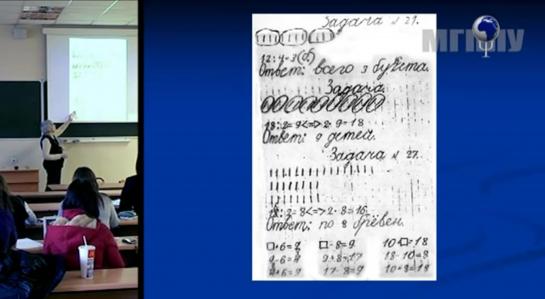 МГППУ
Задача N 21.
12:4=3(б)
Ответ: всего 3 букета.
Задача
18:2=9<=>2·9=18
Ответ: 9 детей.
Задача N 27.
:2=8<=>2·8=16
Ответ: по 8 брёвен.
□-8=9
10+□=18
9+8=17
18-10=8
17-8=9
10+8=18